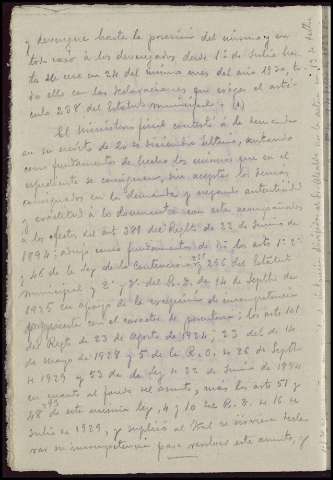 y devengue hasta la posesión del mismo y en
todo caso a los devengados desde 1º de Julio has
ta su cese en 24 del mismo mes del año 1930, to
do ello con las declaraciones que exige el artí
culo 238 del Estatuto municipal. (A)
El Ministerio fiscal contestó a la demanda
en su escrito de 20 de Diciembre último, sentando
como fundamentos de hecho los mismos que en el
expediente se consignan, sin aceptar los demás
consignados en la demanda y negando autenticidad
y exactitud a los documentos con esta acompañados
a los efectos del art 381 del Reglto de 22 de Junio de
1894; adujo como fundamentos de Dº los arts 1º 2º
y 46 de la Ley de lo Contencioso y 256 del Estatuto
municipal y 2º y 3º del R.D. de 14 de Septbre de
1925 en apoyo de la excepción de incompetencia
propuesta con el carácter de perentoria; los arts 101
del Reglto de 23 de Agosto de 1924; 23 del de 14
de mayo de 1928 y 5º de la R.O. de 26 de Septbre
de 1929 y 53 de la Ley de 22 de Junio de 1894
en cuanto al fondo del asunto, más los arts 51 y
48 de esta misma ley, 4 y 10 del R.D. de 16 de
Julio de 1929, y suplicó al Tral se sirviera decla
rar su incompetencia para resolver este asunto, y